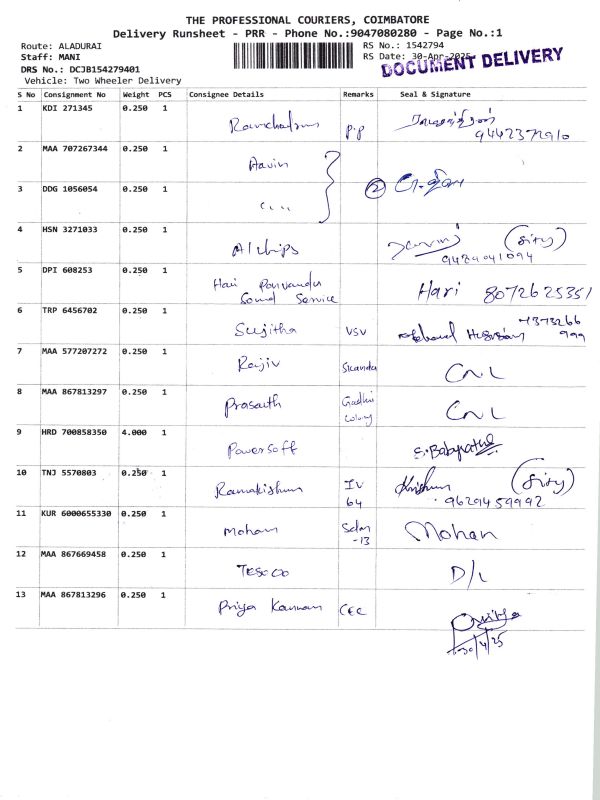 THE PROFESSIONAL COURIERS, COIMBATORE
Delivery Runsheet - PRR - Phone No.:9047080280 - Page No.:1
Route: ALADURAI
RS No.: 1542794
Staff: MANI
RS Date: 30-Apr-2025
DOCUMENT DELIVERY
DRS No.: DCJB154279401
Vehicle: Two Wheeler Delivery
S No Consignment No Weight PCS Consignee Details Remarks Seal & Signature
1 KDI 271345 0.250 1 P.P
9442372910
2 MAA 707267344 0.250 1 Aavin
3 DDG 1056054 0.250 1 " 2
4 HSN 3271033 0.250 1 Al chips (Sity)
9489041094
5 DPI 608253 0.250 1 Hari
Sound Service Hari 8072625351
6 TRP 6456702 0.250 1 Sujitha VSV
7373266
999
7 MAA 577207272 0.250 1 Rajiv CNL
8 MAA 867813297 0.250 1 Prasanth Gadhi
Colony CNL
9 HRD 700858350 4.000 1 Powersoft
10 TNJ 5570803 0.250 1 Ramakishnn IV
64 Krishnn (Sity)
9629459992
11 KUR 6000655330 0.250 1 Mohan
-13 Mohan
12 MAA 867669458 0.250 1 D/L
13 MAA 867813296 0.250 1 Priya Kannan CEC
30/4/25